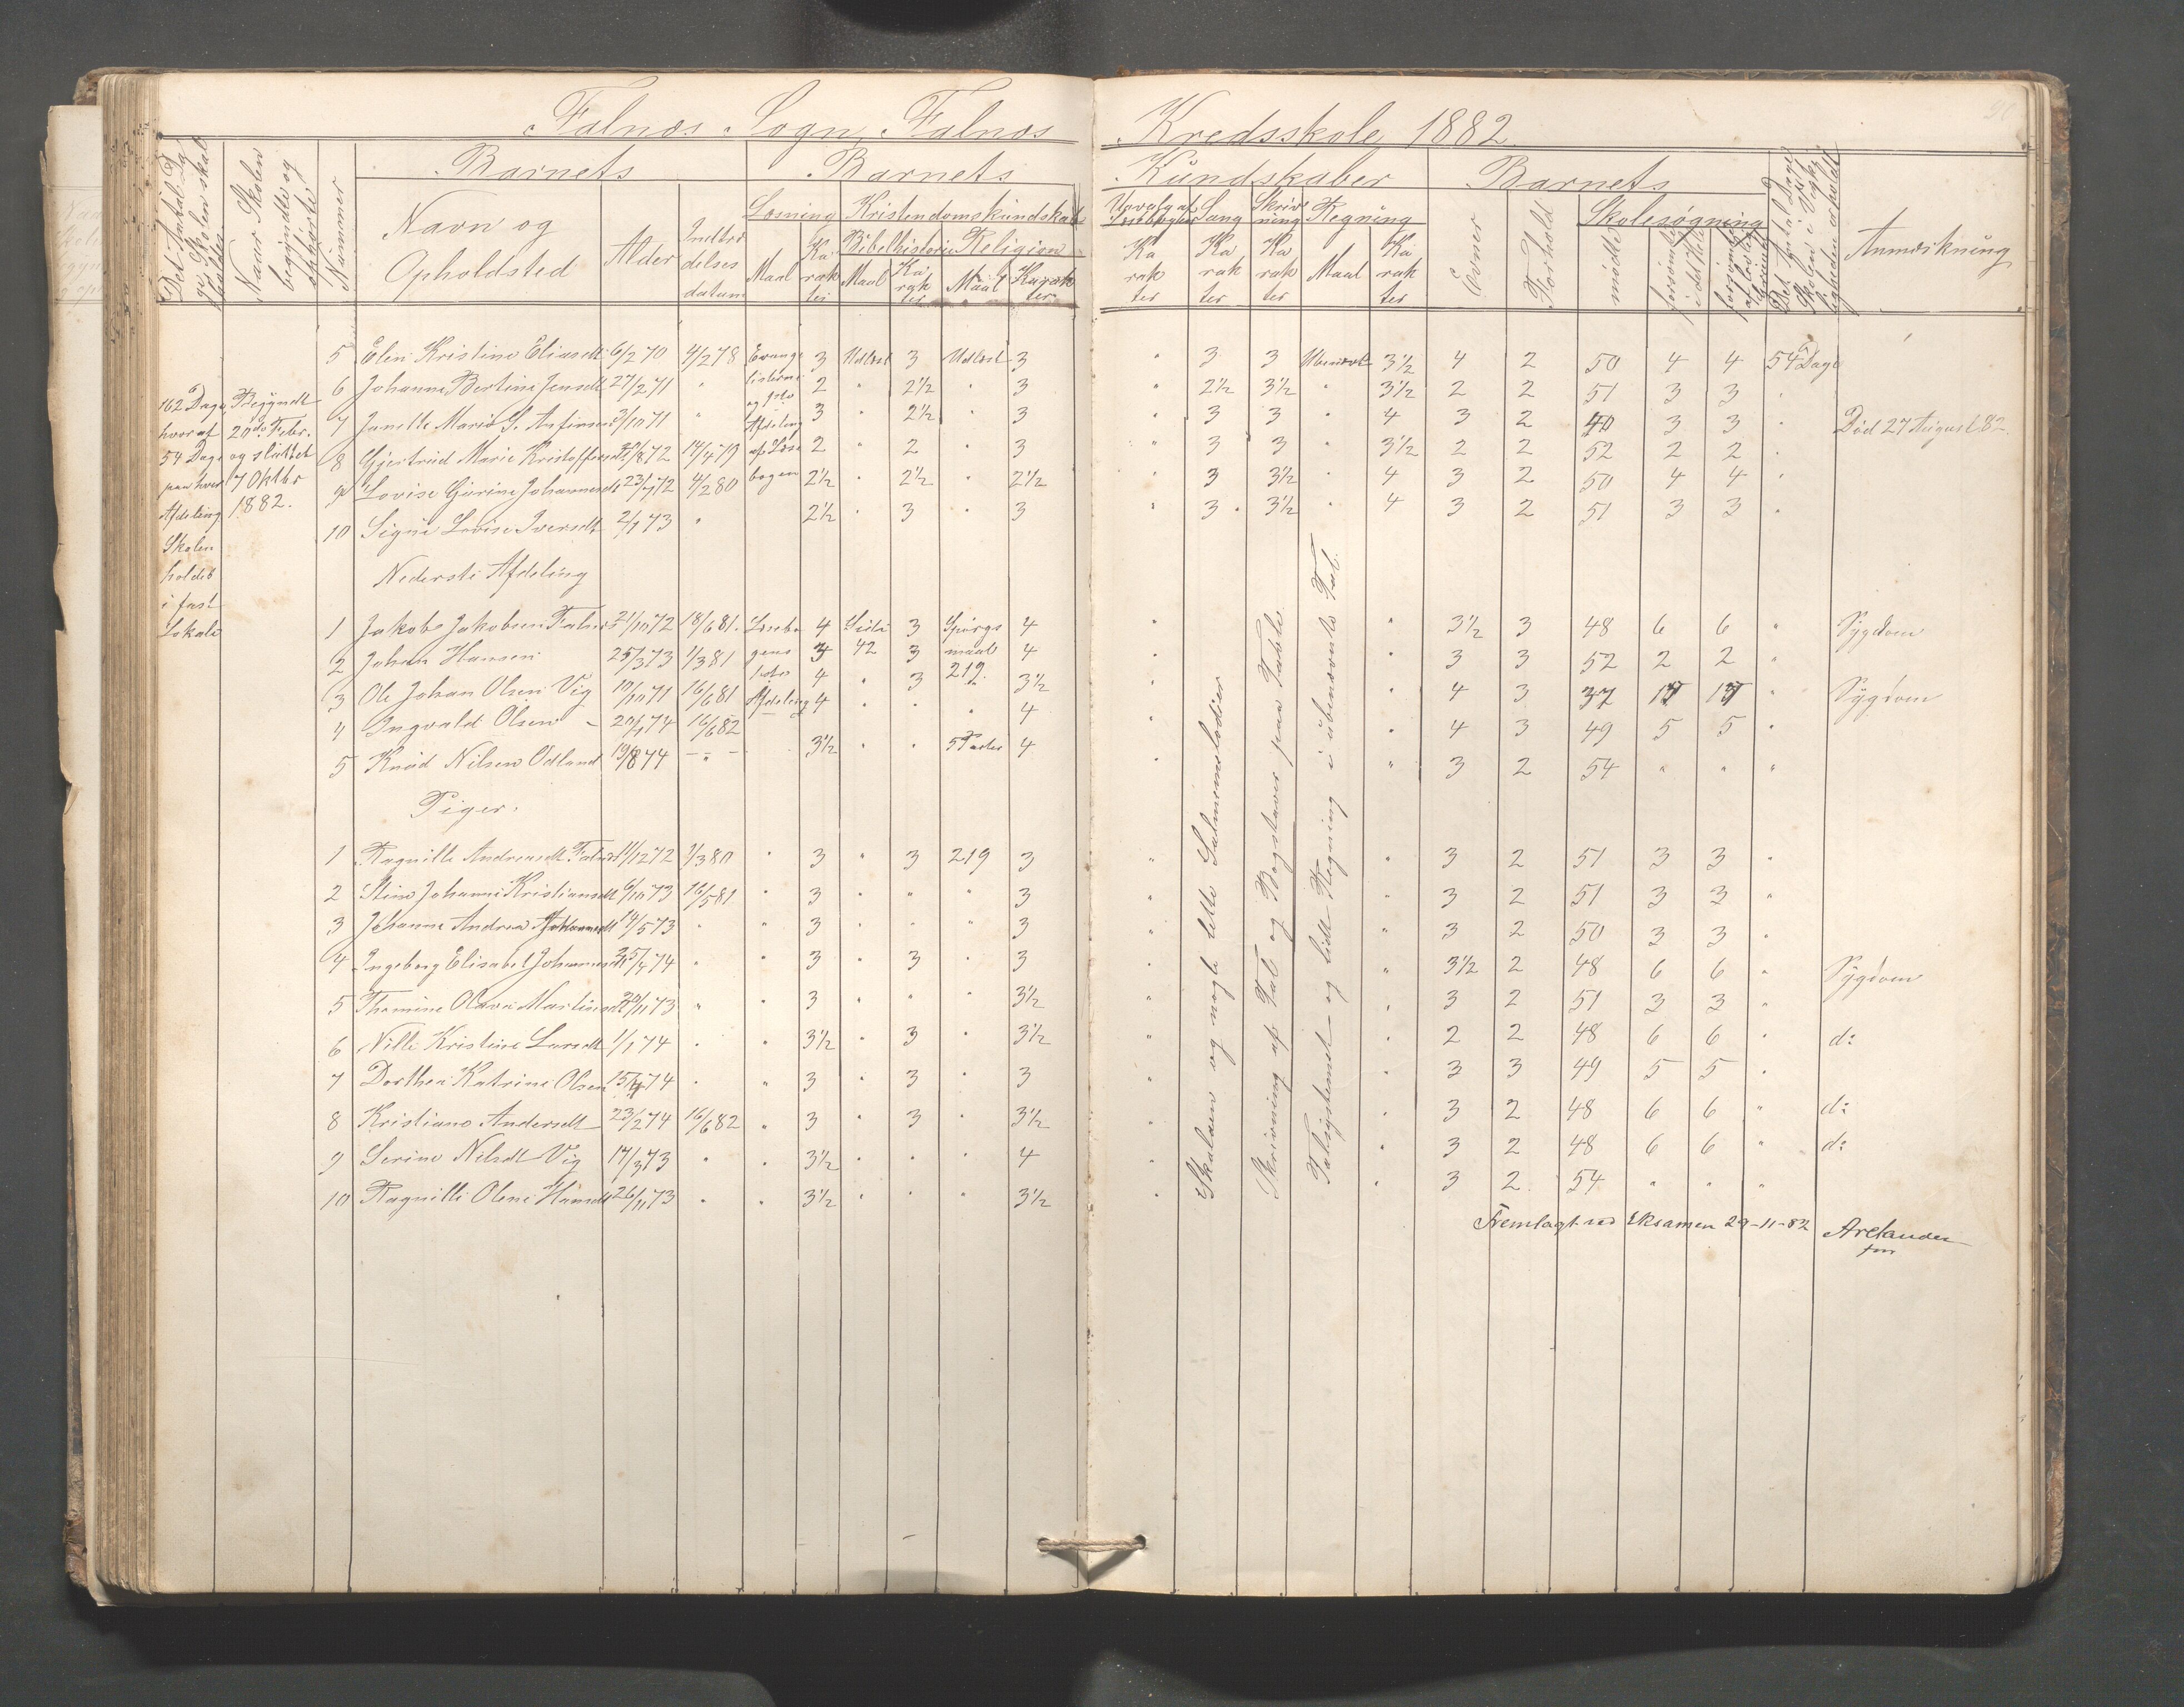 Falnæs Sogn, Falnæs Kredsskole 1882.
Det Antal Dage Skolen skal holdes
Naar Skolen begyndte og ophørte
Nummer
Barnets
Navn og Opholdsted
Alder
Indtrædelses datum
Barnets Kundskaber
Læsning
Maal
Karakter
Kristendomskundskab
Bibelhistorie
Maal
Karakter
Religion
Maal
Karakter
Udvalg af Læsebogen
Karakter
Sang
Karakter
Skrivning
Karakter
Regning
Maal
Karakter
Barnets
Evner
Forhold
Skolesøgning
mødte
forsømte i det Hele
forsømte af lovlig Grund
Det Antal Dage Skolen i Virkeligheden er holdt
Anmærkning
162 Dage hvoraf 54 Dage paa hver Afdeling Skolen holdes i fast Lokale
Begyndt 20de Febr. og sluttet 7 Oktbr 1882.
5 Elen Kristine Eliasdt 6/2 70 4/2 78 Evange 3 Udlæst 3 Udlæst 3 " 3 3 Ubenævnt 3½ 4 2 50 4 4 54 Dage
6 Johanne Bertine Jensdt 27/2 71 " listerne 2 " 2½ " 3 " 2½ 3½ " 3½ 2 2 51 3 3 "
7 Janette Marie S. Anfinsdt 3/10 71 " og 3die Afdeling 3 " 2½ " 3 " 3 3 " 4 3 2 40 3 3 " Død 27 August 82.
8 Gjertrud Marie Kristoffersdt /8 72 14/4 79 af Læse 2 " 2 " 3 " 3 3 " 3½ 2 2 52 2 2 "
9 Lovise Gurine Johannesdt 23/7 72 4/2 80 bogen 2½ " 2½ " 2½ " 3 3½ " 4 3 2 50 4 4 "
10 Signe Lovise Iversdt 2/1 73 " 2½ " 3 " 3 " 3 3½ " 4 3 2 51 3 3 "
Nederste Afdeling
1 Jakob Jakobsen Falnæs 21/10 72 18/6 81. Læsebo 4 Side 3 Spørgs 4 " " 3½ 3 48 6 6 " Sygdom
2 Johan Hansen 25/3 73 1/3 81 gens 3 42 3 maal 4 " " 3 3 52 2 2 "
3 Ole Johan Olsen Vig 10/10 71 16/6 81 1ste 4 " 3 219. 3½ " " 4 3 37 17 17 " Sygdom
4 Ingvald Olsen - 20/1 74 16/6 82 Afdeling 4 " " " 4 " " 4 3 49 5 5 "
5 Knud Nilsen Odland 19/8 74 - " - 3½ " " 5 Parter 4 " " 3 2 54 " " "
Piger.
1 Ragnille Andreasdt Falnæs 11/12 72 1/3 80 " 3 " 3 219 3 " " 3 2 51 3 3 "
2 Stine Johanne Kristiansdt 6/10 73 16/5 81 " 3 " " " 3 " " 3 2 51 3 3 "
3 Johanne Andrea Johannesdt 14/5 73 " " 3 " " " 3 " " 3 2 50 3 3 "
4 Ingeborg Elisabet Johannesdt /4 74 " " 3 " 3 " 3 " " 3½ 2 48 6 6 " Sygdom
5 Thomine Olava Martinsdt /11 73 " " 3 " " " 3½ " " 3 2 51 3 3 "
6 Nille Kristine Larsdt 1/1 74 " " 3½ " 3 " 3½ " " 2 2 48 6 6 " do
7 Dorthea Katrine Olsen 15/4 74 " " 3 " 3 " 3 " " 3 3 49 5 5 "
8 Kristiane Andersdt 23/2 74 16/6 82 " 3 " 3 " 3½ " " 3 2 48 6 6 " do
9 Serine Nilsdt Vig 17/3 73 " " 3½ " " " 4 " " 3 2 48 6 6 " do
10 Ragnille Olene Hansdt 26/11 73 " " 3½ " " " 3½ " " 3 2 54 " " "
Skalaen og nogle lette Salmemelodier
Skrivning af Tal og Bogstaver paa Tavle
Talsystemet og lidt Regning i ubenævnte Tal.
Fremlagt ved Eksamen 29-11-82